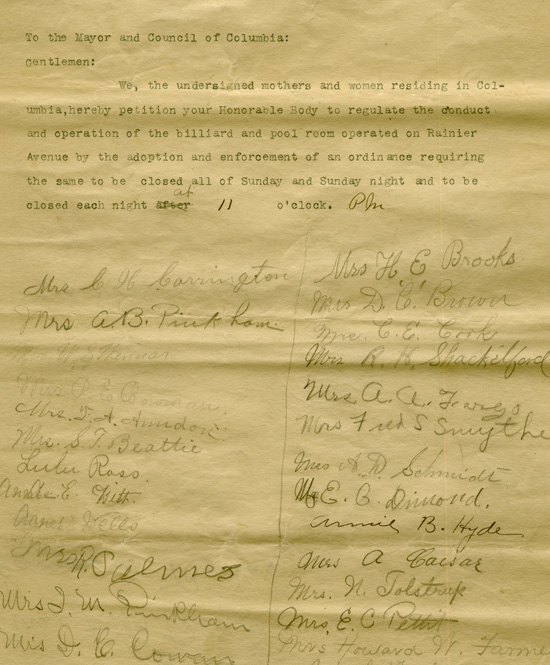 To the Mayor and Council of Columbia:
Gentlemen:
We, the undersigned mothers and women residing in Col-
umbia,hereby petition your Honorable Body to regulate the conduct
and operation of the billiard and pool room operated on Rainier
Avenue by the adoption and enforcement of an ordinance requiring
the same to be closed all of Sunday and Sunday night and to be
at
closed each night after 11 o'clock. Pm
Mrs C W Carrington
Mrs A.B. Pinkham
Mrs.
Mrs.
Mrs. T. A.
Mrs. S. T. Beattie
Lulu Ross
E.
Wells
Mrs R.
Mrs J. M. Pinkham
Mrs D. C. Cowan
Mrs H E Brooks
Mrs D. C. Brown
Mrs. C. E. Cook
Mrs R. R. Shackelford
Mrs A. A. Fargo
Mrs Fred S Smythe
Mrs A. D. Schmidt
E. C. Dimond.
Annie B. Hyde
Mrs A Caesar
Mrs. N. Tolstrup
Mrs. E. C Pettit
Mrs Howard W. Farme